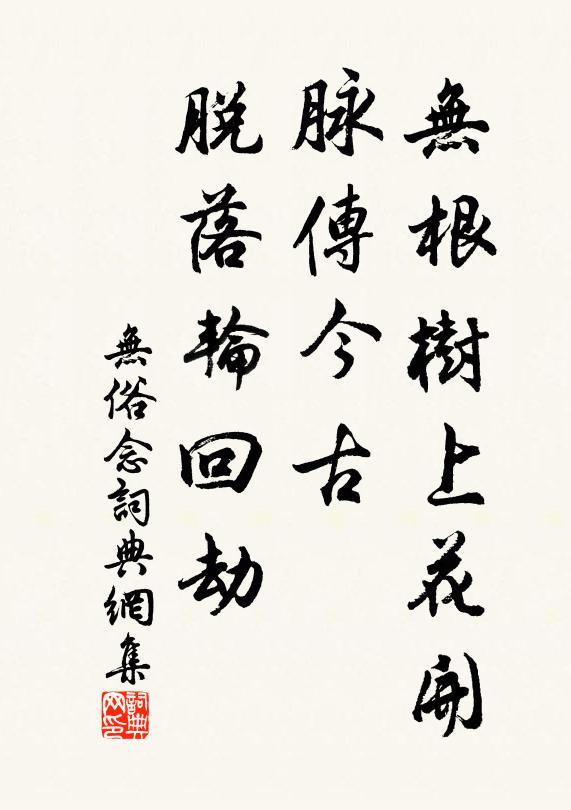 無根樹上花開
脉傳今古
脱落輪回劫
無俗念詞典網集
詞典网印